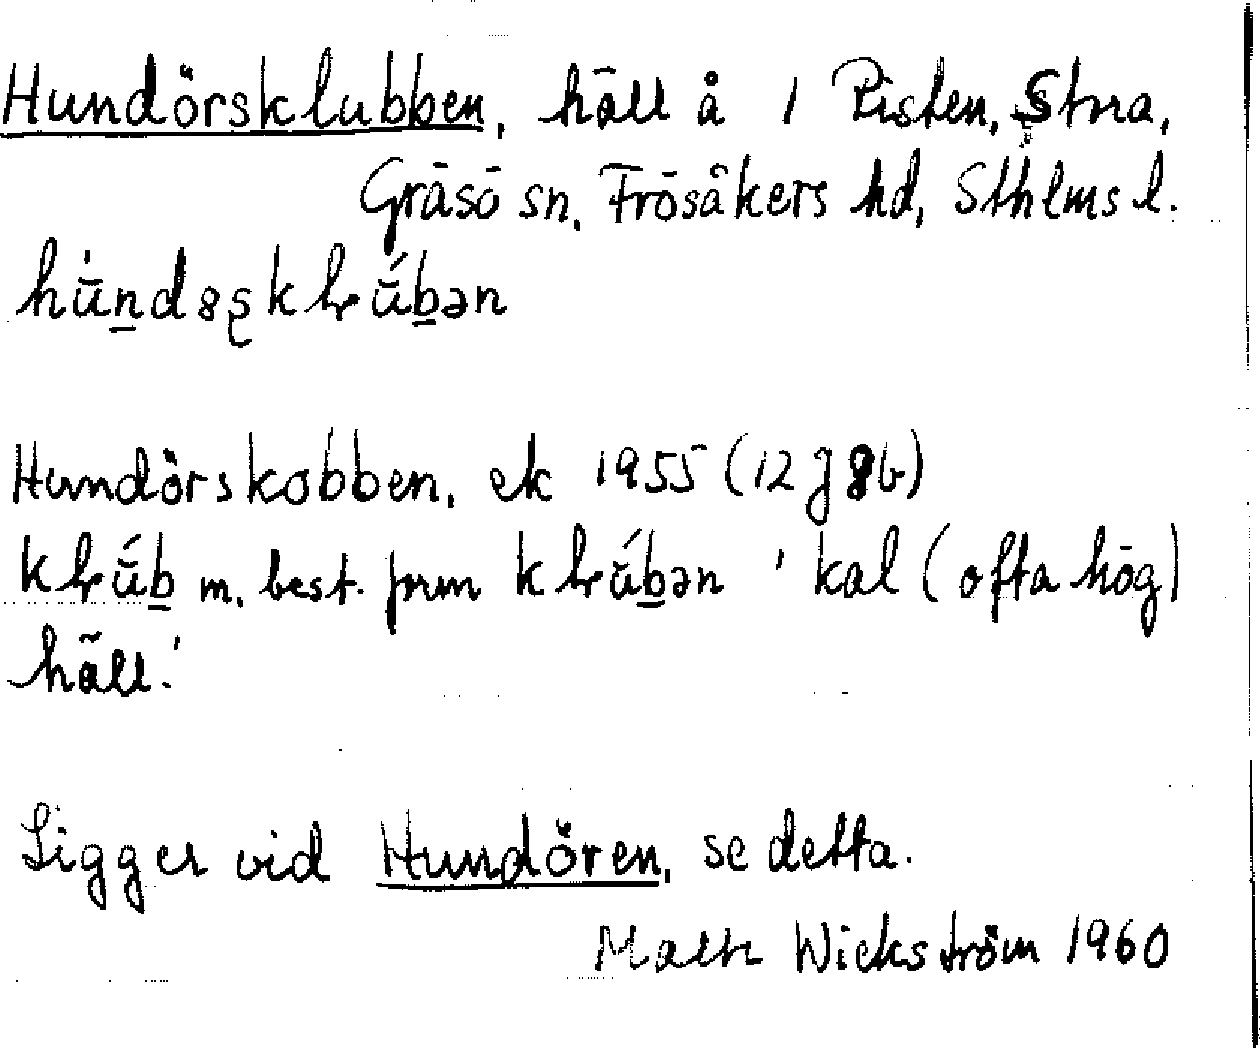 Hundörsklubben, häll å 1 Risten, Stora,
Gräsö sn, Frösåkers hd, Sthlms l.
Hundörskobben, ek 1955 (12 J 8b)
m. best. form 'kal (ofta hög)
häll.'
Ligger vid Hundören, se detta.
Wickström 1960